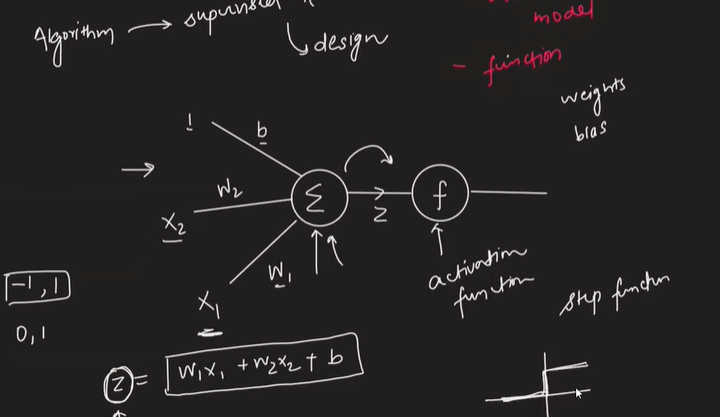 Algorithm → supervised
design
model
- function
weights
bias
1
b
W₂
X₂
W₁
X₁
Σ
z
f
activation
function
step function
-1, 1
0, 1
z = W₁X₁ + W₂X₂ + b